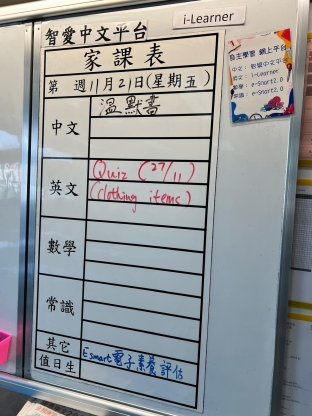 智愛中文平台
i-Learner
家課表
第 週 11月21日(星期五)
中文
溫默書
英文
Quiz (27/11)
(clothing items)
數學
常識
其它
Esmart電子素養評估
值日生
自主學習 網上平台
中文：智愛中文平台
英文：i-Learner
數學：e-Smart2.0
常識：e-Smart2.0